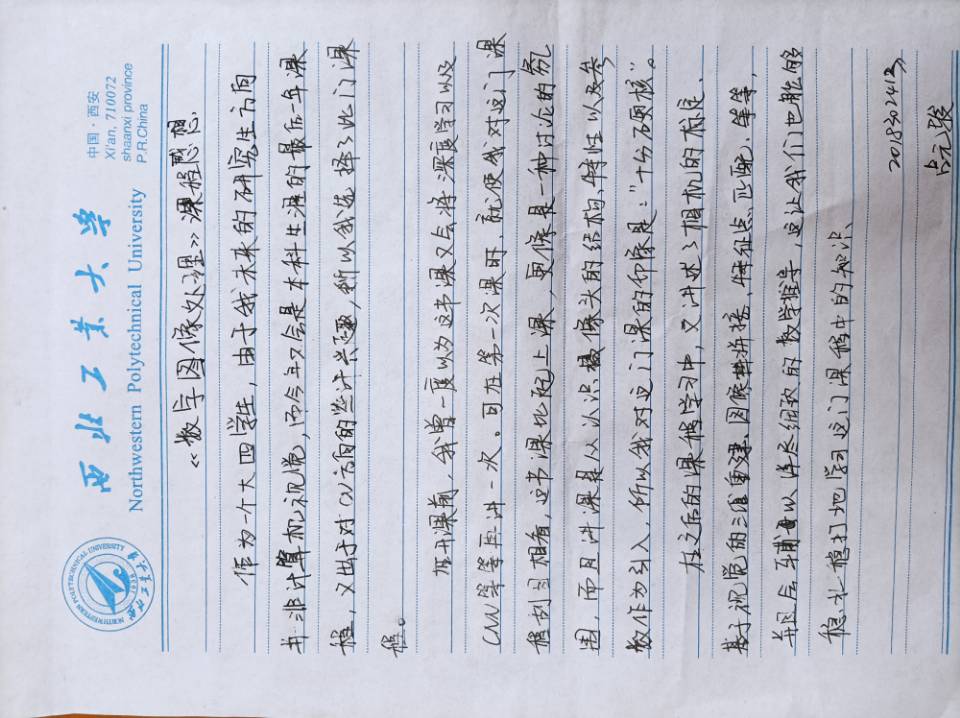 西北工业大学
Northwestern Polytechnical University
中国·西安
Xi'an, 710072
shaanxi province
P.R.China
NORTHWESTERN POLYTECHNICAL UNIVERSITY
西北工业大学
1938
《数字图像处理》课程感想
作为一个大四学生,由于我未来的研究生方向
并非计算机视觉,而今年又会是本科生涯的最后一年课
程,又出于对CV方向的些许兴趣,所以我选择了此门课
程。
在开课前,我曾一度以为这节课又会将深度学习以及
CNN等等再讲一次。可在第一次课时,就使我对这门课
程刮目相看,这节课比起上课,更像是一种讨论的氛
围,而且讲课是从认识摄像头的结构、特性以及参
数作为引入,所以我对这门课的印像是:"十分硬核"。
在之后的课程学习中,又讲述了相机的标定、
基于视觉的三维重建、图像拼接、特征点匹配,等等,
并且会辅以详尽细致的数学推导,这让我们也能够
稳扎稳打地学习这门课程中的知识、
2018302412